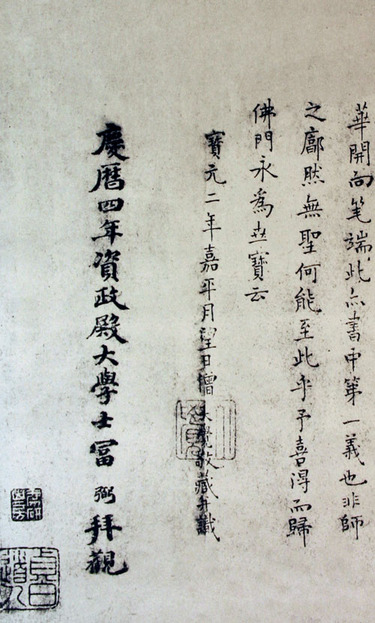 華開向筆端此亦書中第一義也非師
之廓然無聖何能至此乎予喜得而歸
佛門永為世寶云
寶元二年嘉平月望日僧大覺敬藏并識
慶曆四年資政殿大學士富弼拜觀